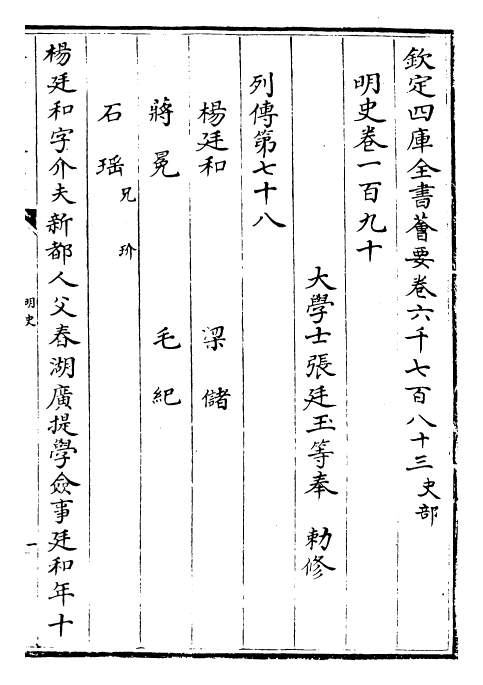 欽定四庫全書薈要卷六千七百八十三史部
明史卷一百九十
大學士張廷玉等奉 勅修
列傳第七十八
楊廷和 梁儲
蔣冕 毛紀
石瑶兄玠
楊廷和字介夫新都人父春湖廣提學僉事廷和年十
明史
一